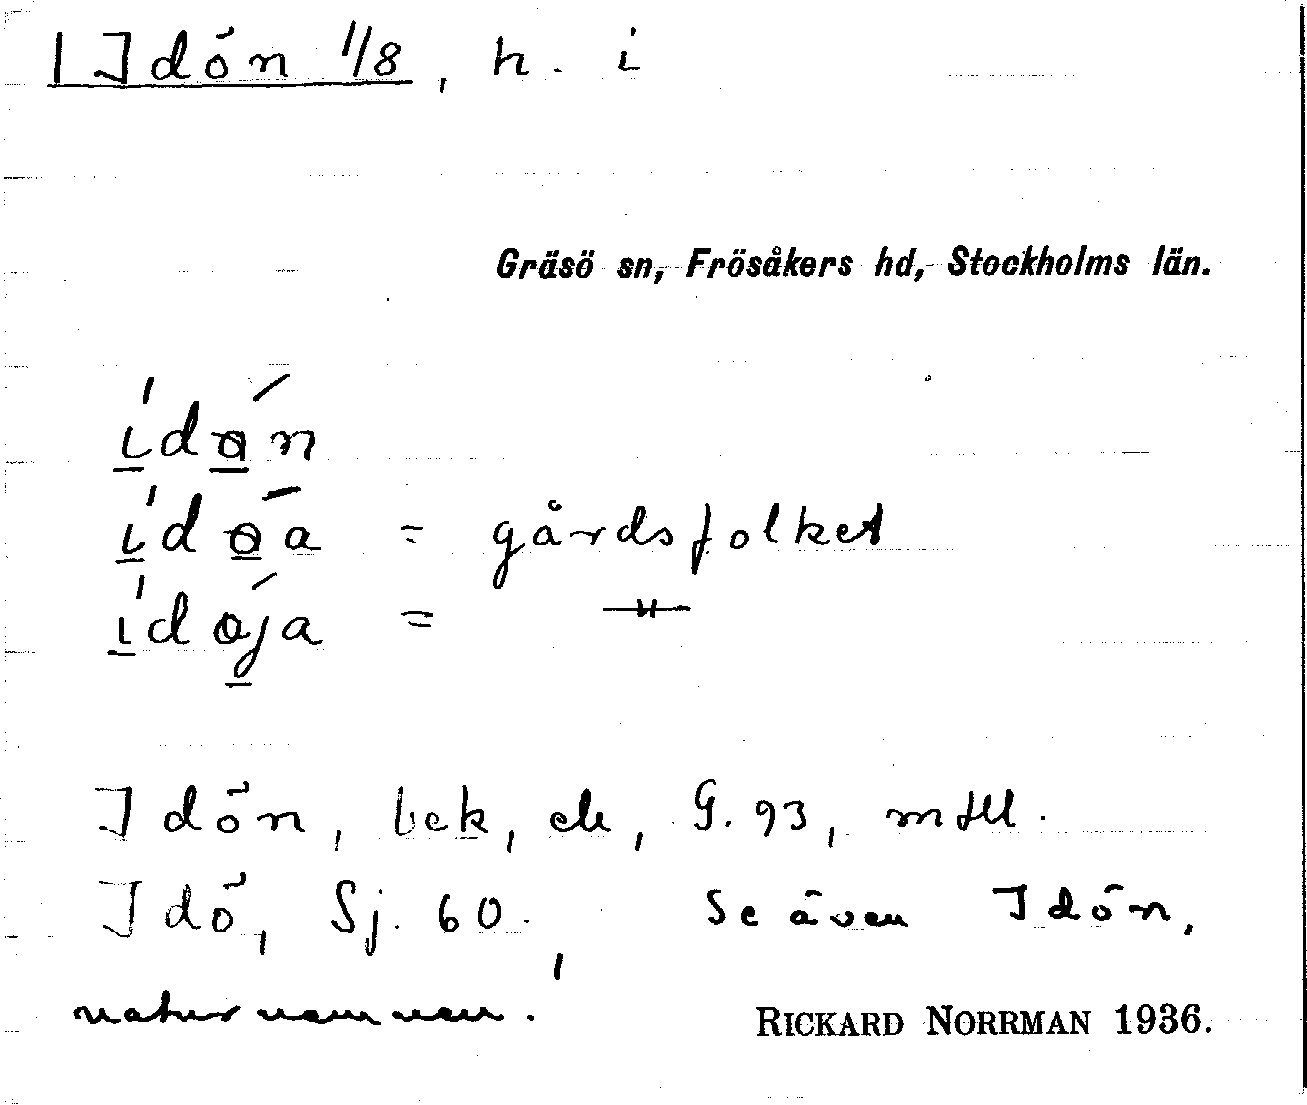 1 Idön 1/8, h. i
Gräsö sn, Frösåkers hd, Stockholms län.
ídǿn
ídǿa = gårdsfolket
ídǿja = –"–
Idön, bck, ek, G. 93, mtl.
Idö, Sj. 60. Se även Idön,
naturnamnen.
RICKARD NORRMAN 1936.